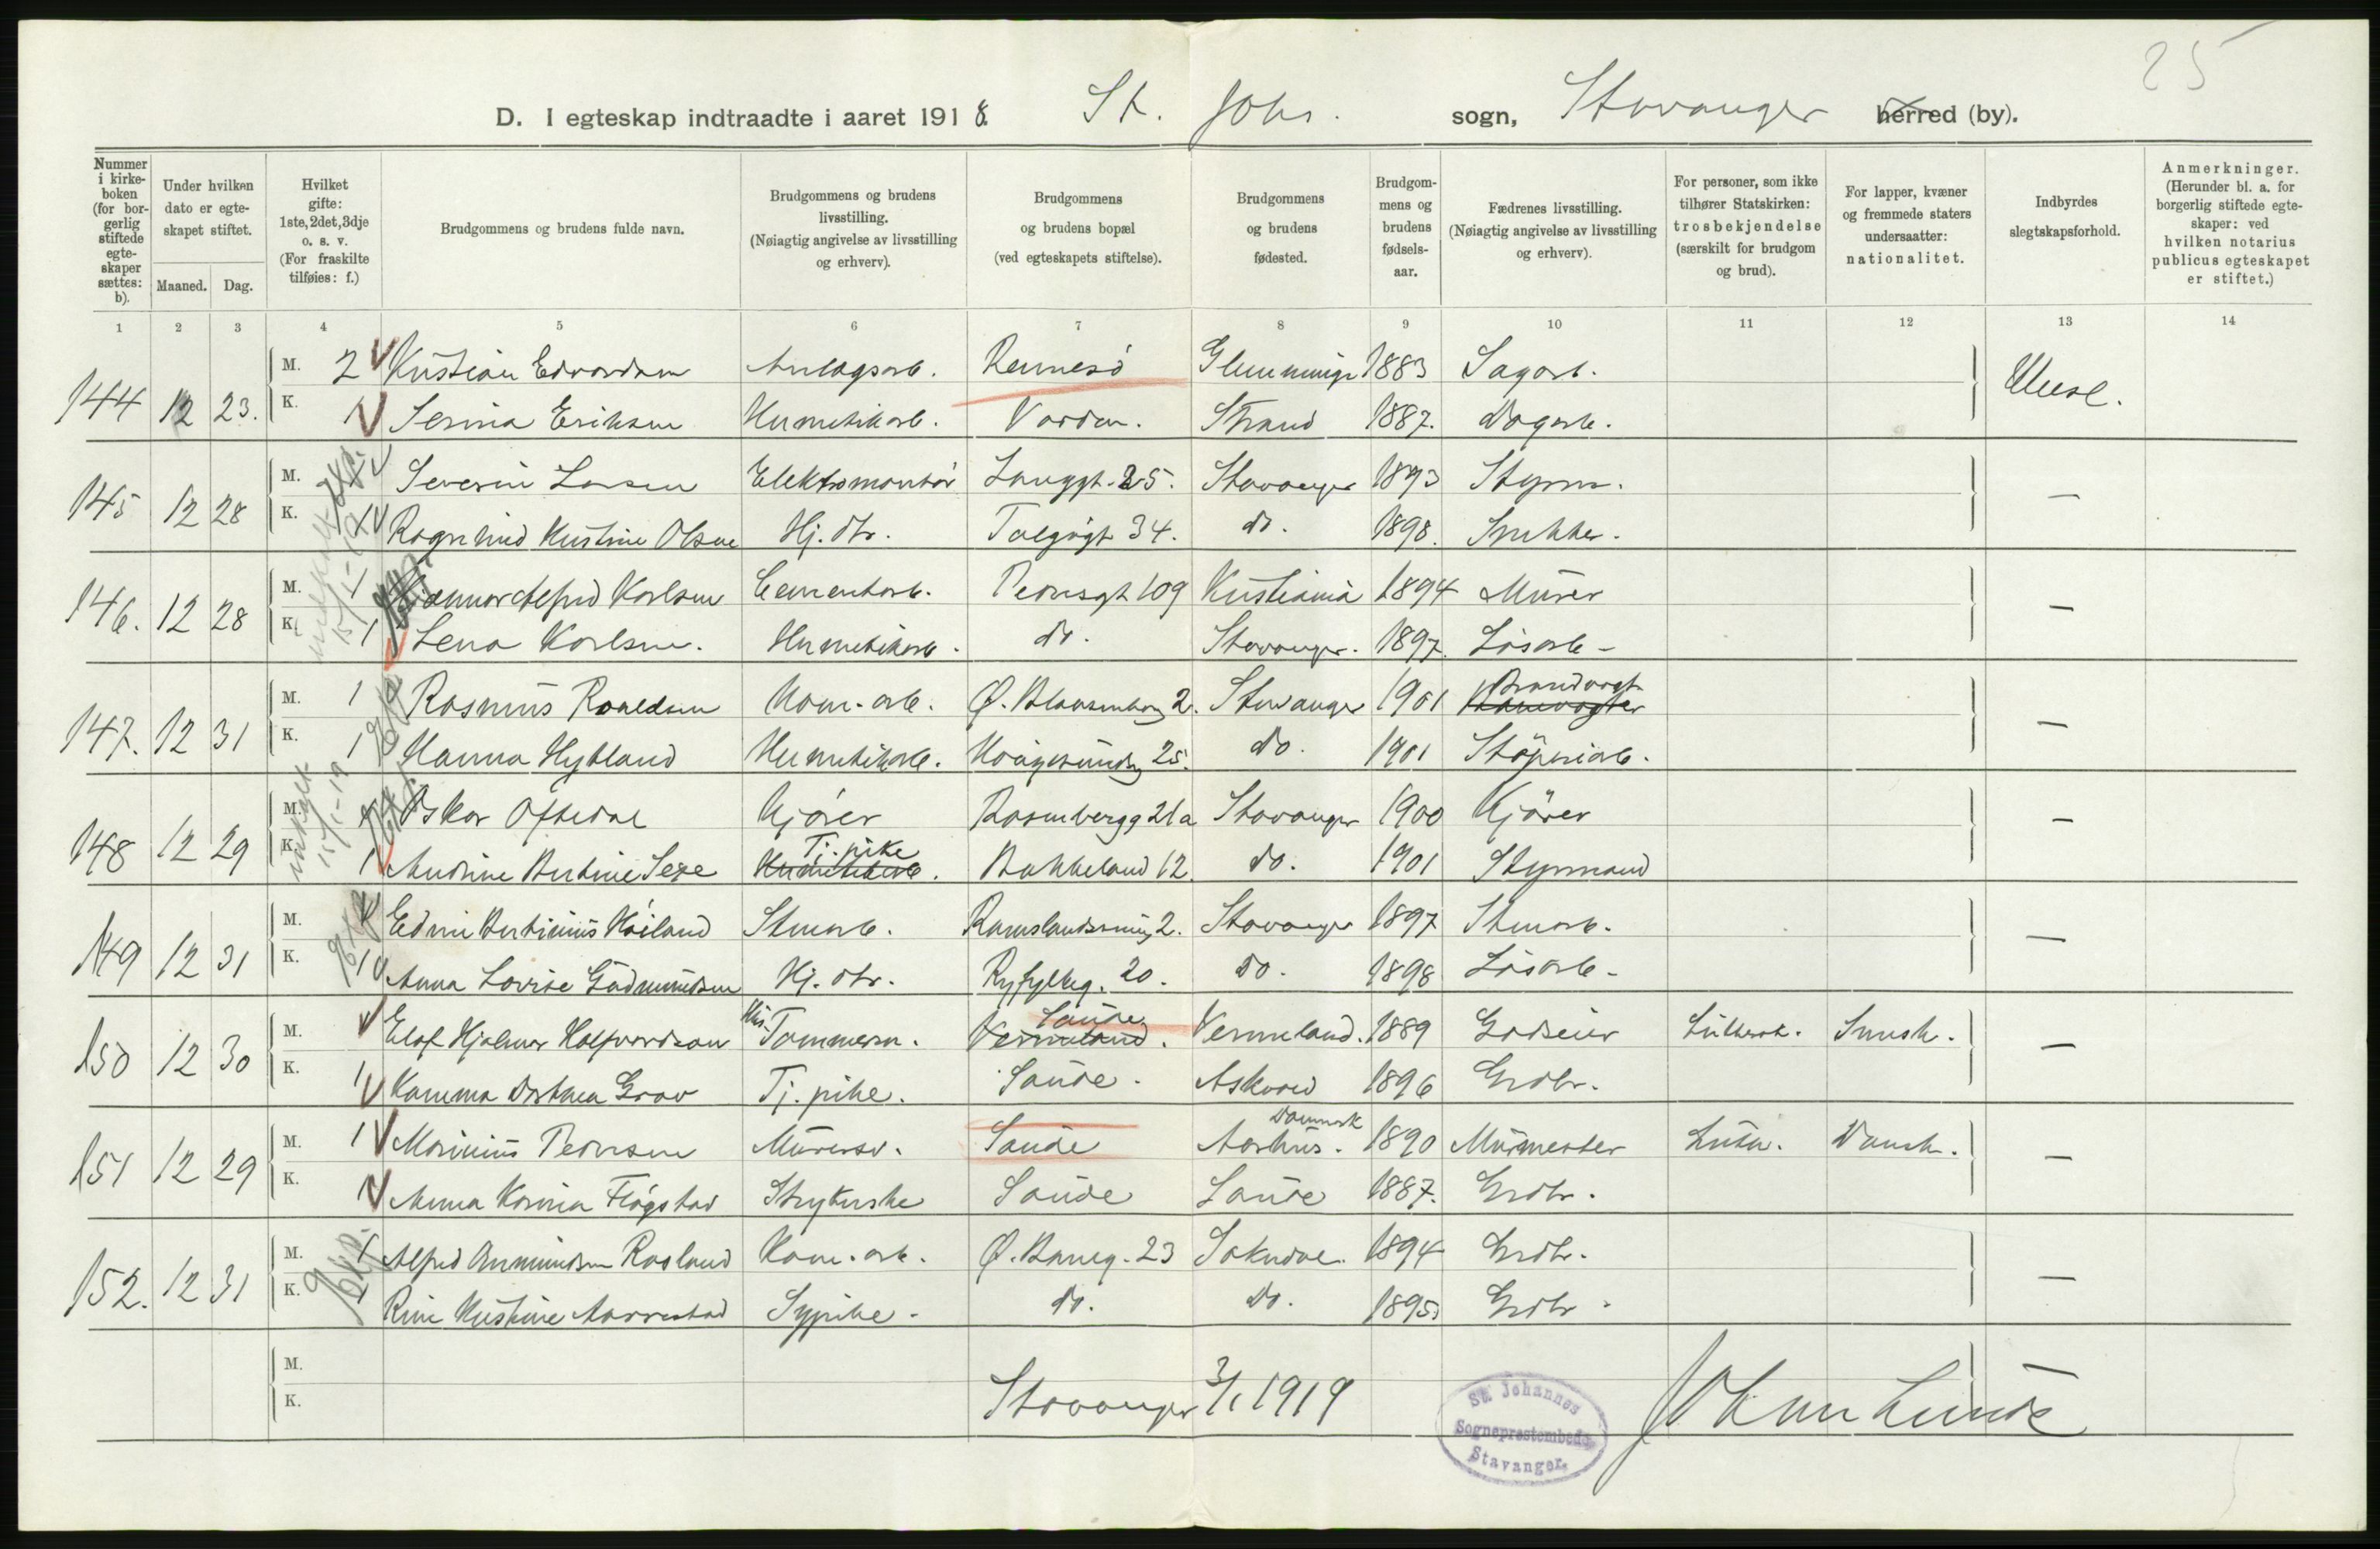 25
D. I egteskap indtraadte i aaret 1918. St. Johs. sogn, Stavanger herred (by).
Nummer i kirkeboken (for borgerlig stiftede egteskaper sættes: b).
Under hvilken dato er egteskapet stiftet.
Maaned. Dag.
Hvilket gifte: 1ste, 2det, 3dje o. s. v. (For fraskilte tilføies: f.)
Brudgommens og brudens fulde navn.
Brudgommens og brudens livsstilling. (Nøiagtig angivelse av livsstilling og erhverv).
Brudgommens og brudens bopæl (ved egteskapets stiftelse).
Brudgommens og brudens fødested.
Brudgommens og brudens fødselsaar.
Fædrenes livsstilling. (Nøiagtig angivelse av livsstilling og erhverv).
For personer, som ikke tilhører Statskirken: trosbekjendelse (særskilt for brudgom og brud).
For lapper, kvæner og fremmede staters undersaatter: nationalitet.
Indbyrdes slegtskapsforhold.
Anmerkninger. (Herunder bl. a. for borgerlig stiftede egteskaper: ved hvilken notarius publicus egteskapet er stiftet.)
1 2 3 4 5 6 7 8 9 10 11 12 13 14
M. 2 Kristian Edvardsen Anlægsarb. Rennesö Glemminge 1883 Sagarb.
144 12 23. K. 1 Serina Eriksen Hermetikarb. Vardan. Strand 1887. Dagarb.
M. 1 Severin Larsen Elektromontör Langgt. 25. Stavanger 1893 Styrm.
145 12 28 K. 1 Ragnhild Kristine Olsen Hj. dtr. Talgögt 34. do. 1898. Snekker.
M. 1 Alfred Karlsen Cementarb. Pedersgt 109 Kristiania 1894 Murer
146. 12 28 K. 1 Lena Karlsen. Hermetikarb. do. Stavanger. 1897. Løsarb.
M. 1 Rasmus Roaldsen Kom. arb. Ø. Blaasenborg 2. Stavanger 1901 Brandvagt
147. 12 31 K. 1 Hanna Hytland Hermetikarb. Haugesundsg 25. do. 1901 Støperiarb.
M. 1 Oskar Oftedal Kjører Rosenbergg 21a Stavanger 1900 Kjører
148 12 29 K. 1 Andrine Bertine Sexe Tj. pike Bakkeland 12. do. 1901 Styrmand
M. 1 Edvin Bertinius Høiland Stuerarb. Ramslandsming 2. Stavanger 1897 Stuerarb.
149 12 31 K. 1 Anna Lovise Gudmundsen Hj. dtr. Ryfylkeg. 20. do. 1898 Løsarb.
M. Elof Hjalmar Halfvardson Hus Tømmerm. Vermeland. Saude Vermeland. 1889 Godseier Luthersk. Svensk.
150 12 30 K. 1 Kamma Dorthea Grav Tj. pike. Saude. Askvold 1896 Grdbr.
M. 1 Marinius Pedersen Murersv. Saude Aarhus. Danmark 1890 Murmester Luth. Dansk.
151 12 29 K. 1 Anna Karina Fløgstad Strykerske Saude Saude 1887. Grdbr.
M. 1 Alfred Ommundsen Rosland Kom. arb. Ø. Baneg. 23 Sokndal 1894 Grdbr.
152. 12 31 K. 1 Rine Kristine Aarrestad Sypike. do. do. 1895. Grdbr.
M.
K. Stavanger 3/1 1919
St. Johannes Sogneprestembede Stavanger.
Johan Lunde